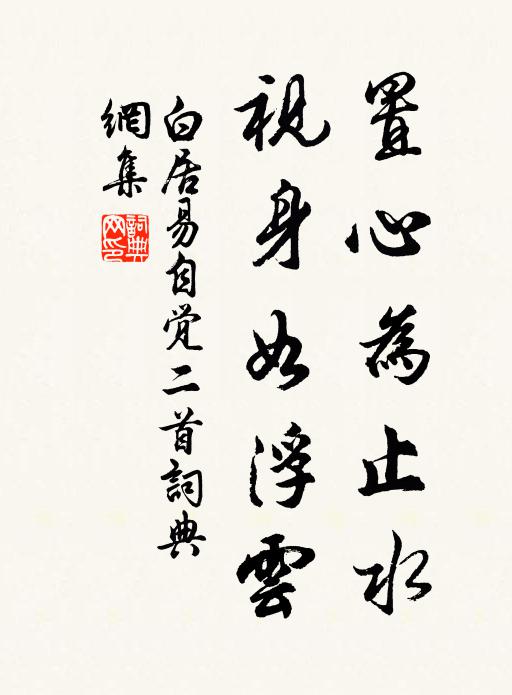 置心為止水
視身如浮雲
白居易自觉二首詞典
網集
詞典
网印